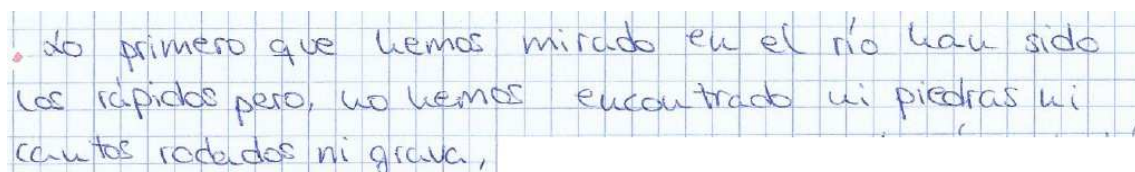 . Lo primero que hemos mirado en el río han sido
los rápidos pero, no hemos encontrado ni piedras ni
cantos rodados ni grava,